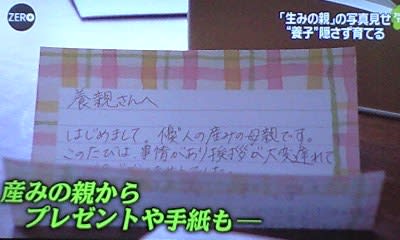 ZERO
「生みの親」の写真見せ
“養子”隠さず育てる
養親さんへ
はじめまして。優人の産みの母親です。
このたびは、事情があり挨拶が大変遅れて
産みの親から
プレゼントや手紙も―